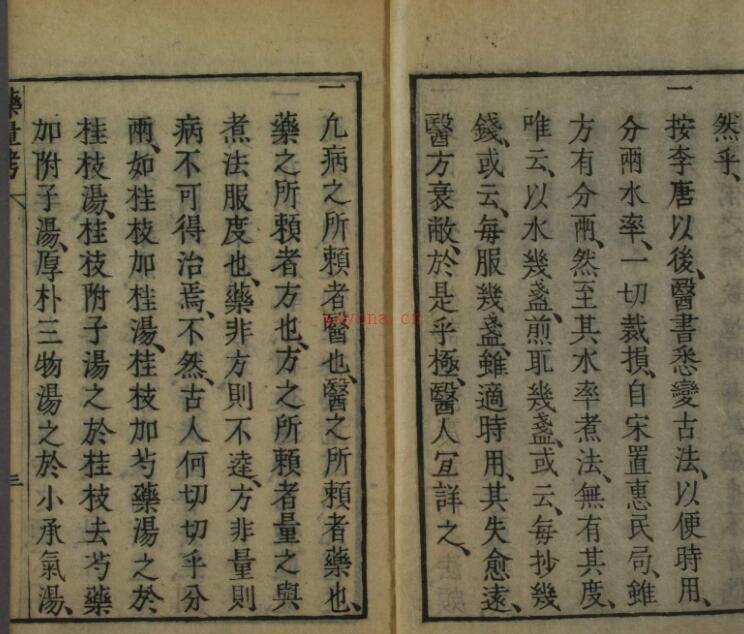 然乎、
一 按李唐以後、醫書悉變古法、以便時用、
分兩水率、一切裁損、自宋置惠民局、雖
方有分兩、然至其水率煮法、無有其度、
唯云、以水幾盞、煎耴幾盞、或云、每抄幾
錢、或云、每服幾盞、雖適時用、其失愈遠、
醫方衰敝、於是乎極、醫人宜詳之、
一 凢病之所頼者醫也、醫之所頼者藥也、
藥之所頼者方也、方之所頼者量之與
煮法服度也、藥非方則不達、方非量則
病不可得治焉、不然古人何切切乎分
兩、如桂枝加桂湯、桂枝加芍藥湯之於
桂枝湯、桂枝附子湯之於桂枝去芍藥
加附子湯、厚朴三物湯之於小承氣湯、
藥量考
三